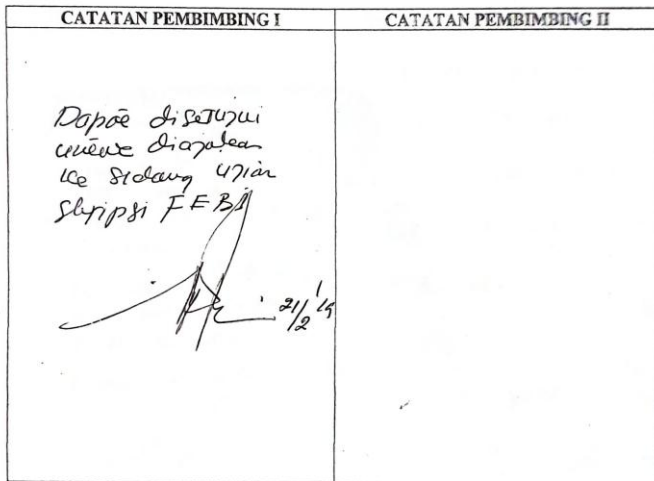 CATATAN PEMBIMBING I
CATATAN PEMBIMBING II
Dapat disetujui
untuk diajukan
ke sidang ujian
skripsi FEBI
21/2 '19